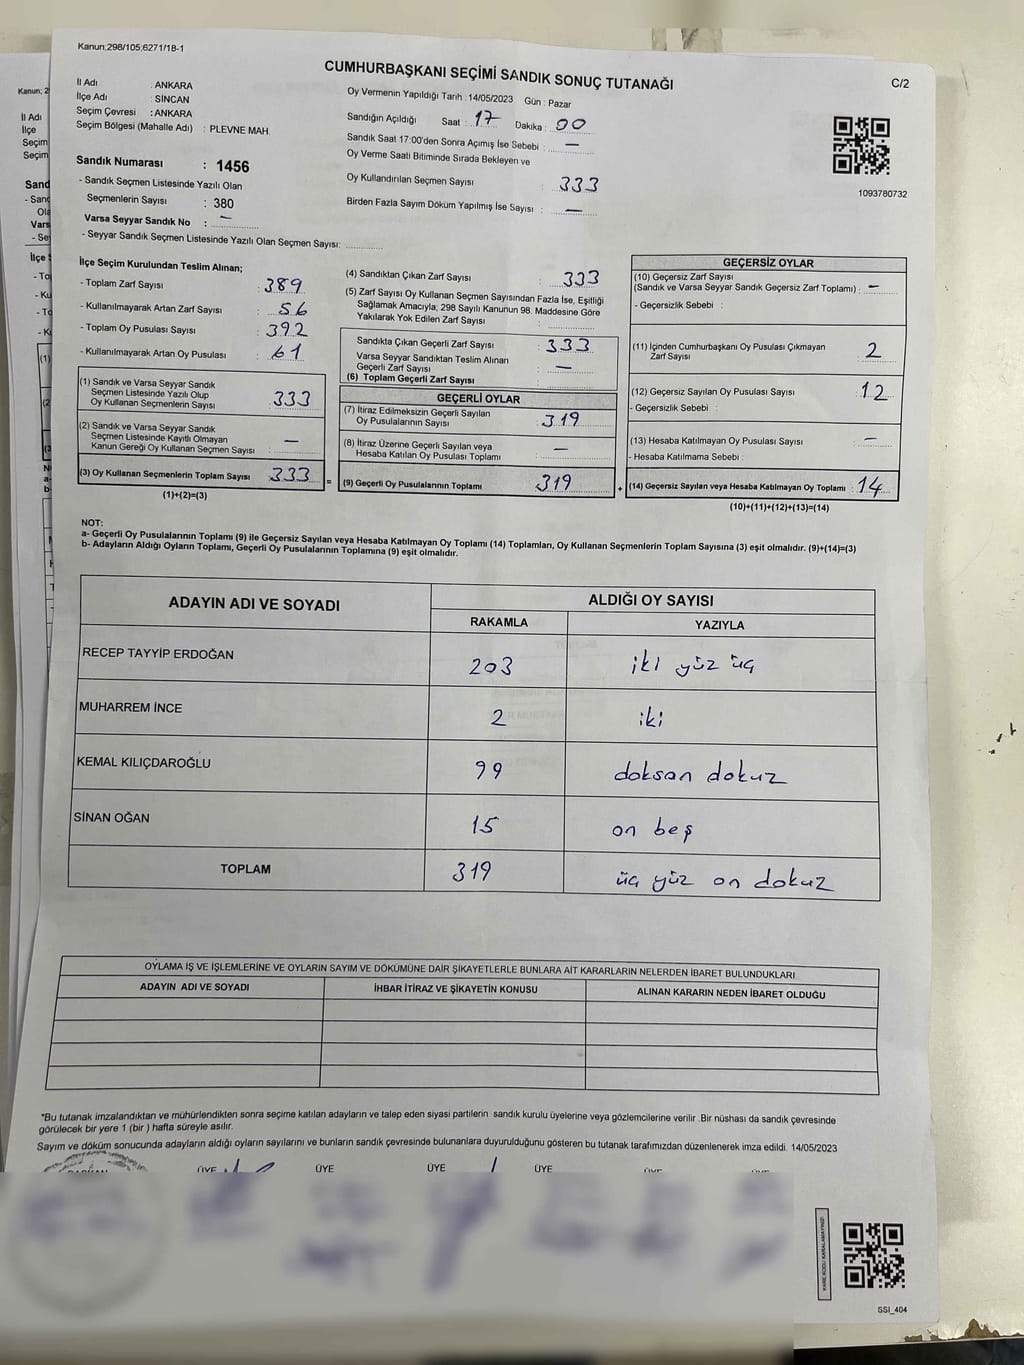 Kanun;298/105,6271/18-1
CUMHURBAŞKANI SEÇİMİ SANDIK SONUÇ TUTANAĞI
C/2
İl Adı : ANKARA
İlçe Adı : SİNCAN
Seçim Çevresi : ANKARA
Seçim Bölgesi (Mahalle Adı) : PLEVNE MAH.
Sandık Numarası : 1456
- Sandık Seçmen Listesinde Yazılı Olan
Seçmenlerin Sayısı : 380
Varsa Seyyar Sandık No : —
- Seyyar Sandık Seçmen Listesinde Yazılı Olan Seçmen Sayısı:
Oy Vermenin Yapıldığı Tarih : 14/05/2023 Gün : Pazar
Sandığın Açıldığı Saat : 17 Dakika : 00
Sandık Saat 17:00'den Sonra Açımış İse Sebebi : —
Oy Verme Saati Bitiminde Sırada Bekleyen ve
Oy Kullandırılan Seçmen Sayısı : 333
Birden Fazla Sayım Döküm Yapılmış İse Sayısı : —
1093780732
İlçe Seçim Kurulundan Teslim Alınan;
- Toplam Zarf Sayısı : 389
- Kullanılmayarak Artan Zarf Sayısı : 56
- Toplam Oy Pusulası Sayısı : 392
- Kullanılmayarak Artan Oy Pusulası : 61
(1) Sandık ve Varsa Seyyar Sandık
Seçmen Listesinde Yazılı Olup
Oy Kullanan Seçmenlerin Sayısı : 333
(2) Sandık ve Varsa Seyyar Sandık
Seçmen Listesinde Kayıtlı Olmayan
Kanun Gereği Oy Kullanan Seçmen Sayısı : —
(3) Oy Kullanan Seçmenlerin Toplam Sayısı : 333
(1)+(2)=(3)
(4) Sandıktan Çıkan Zarf Sayısı : 333
(5) Zarf Sayısı Oy Kullanan Seçmen Sayısından Fazla İse, Eşitliği
Sağlamak Amacıyla; 298 Sayılı Kanunun 98. Maddesine Göre
Yakılarak Yok Edilen Zarf Sayısı :
Sandıkta Çıkan Geçerli Zarf Sayısı : 333
Varsa Seyyar Sandıktan Teslim Alınan
Geçerli Zarf Sayısı : —
(6) Toplam Geçerli Zarf Sayısı :
GEÇERLİ OYLAR
(7) İtiraz Edilmeksizin Geçerli Sayılan
Oy Pusulalarının Sayısı : 319
(8) İtiraz Üzerine Geçerli Sayılan veya
Hesaba Katılan Oy Pusulası Toplamı : —
= (9) Geçerli Oy Pusulalarının Toplamı : 319
GEÇERSİZ OYLAR
(10) Geçersiz Zarf Sayısı
(Sandık ve Varsa Seyyar Sandık Geçersiz Zarf Toplamı) : —
- Geçersizlik Sebebi :
(11) İçinden Cumhurbaşkanı Oy Pusulası Çıkmayan
Zarf Sayısı : 2
(12) Geçersiz Sayılan Oy Pusulası Sayısı : 12
- Geçersizlik Sebebi :
(13) Hesaba Katılmayan Oy Pusulası Sayısı : —
- Hesaba Katılmama Sebebi :
+ (14) Geçersiz Sayılan veya Hesaba Katılmayan Oy Toplamı : 14
(10)+(11)+(12)+(13)=(14)
NOT:
a- Geçerli Oy Pusulalarının Toplamı (9) ile Geçersiz Sayılan veya Hesaba Katılmayan Oy Toplamı (14) Toplamları, Oy Kullanan Seçmenlerin Toplam Sayısına (3) eşit olmalıdır. (9)+(14)=(3)
b- Adayların Aldığı Oyların Toplamı, Geçerli Oy Pusulalarının Toplamına (9) eşit olmalıdır.
ADAYIN ADI VE SOYADI ALDIĞI OY SAYISI
RAKAMLA YAZIYLA
RECEP TAYYİP ERDOĞAN 203 iki yüz üç
MUHARREM İNCE 2 iki
KEMAL KILIÇDAROĞLU 99 doksan dokuz
SİNAN OĞAN 15 on beş
TOPLAM 319 üç yüz on dokuz
OYLAMA İŞ VE İŞLEMLERİNE VE OYLARIN SAYIM VE DÖKÜMÜNE DAİR ŞİKAYETLERLE BUNLARA AİT KARARLARIN NELERDEN İBARET BULUNDUKLARI
ADAYIN ADI VE SOYADI İHBAR İTİRAZ VE ŞİKAYETİN KONUSU ALINAN KARARIN NEDEN İBARET OLDUĞU
*Bu tutanak imzalandıktan ve mühürlendikten sonra seçime katılan adayların ve talep eden siyasi partilerin sandık kurulu üyelerine veya gözlemcilerine verilir. Bir nüshası da sandık çevresinde
görülecek bir yere 1 (bir ) hafta süreyle asılır.
Sayım ve döküm sonucunda adayların aldığı oyların sayılarını ve bunların sandık çevresinde bulunanlara duyurulduğunu gösteren bu tutanak tarafımızdan düzenlenerek imza edildi. 14/05/2023
ÜYE ÜYE ÜYE ÜYE
SSI_404